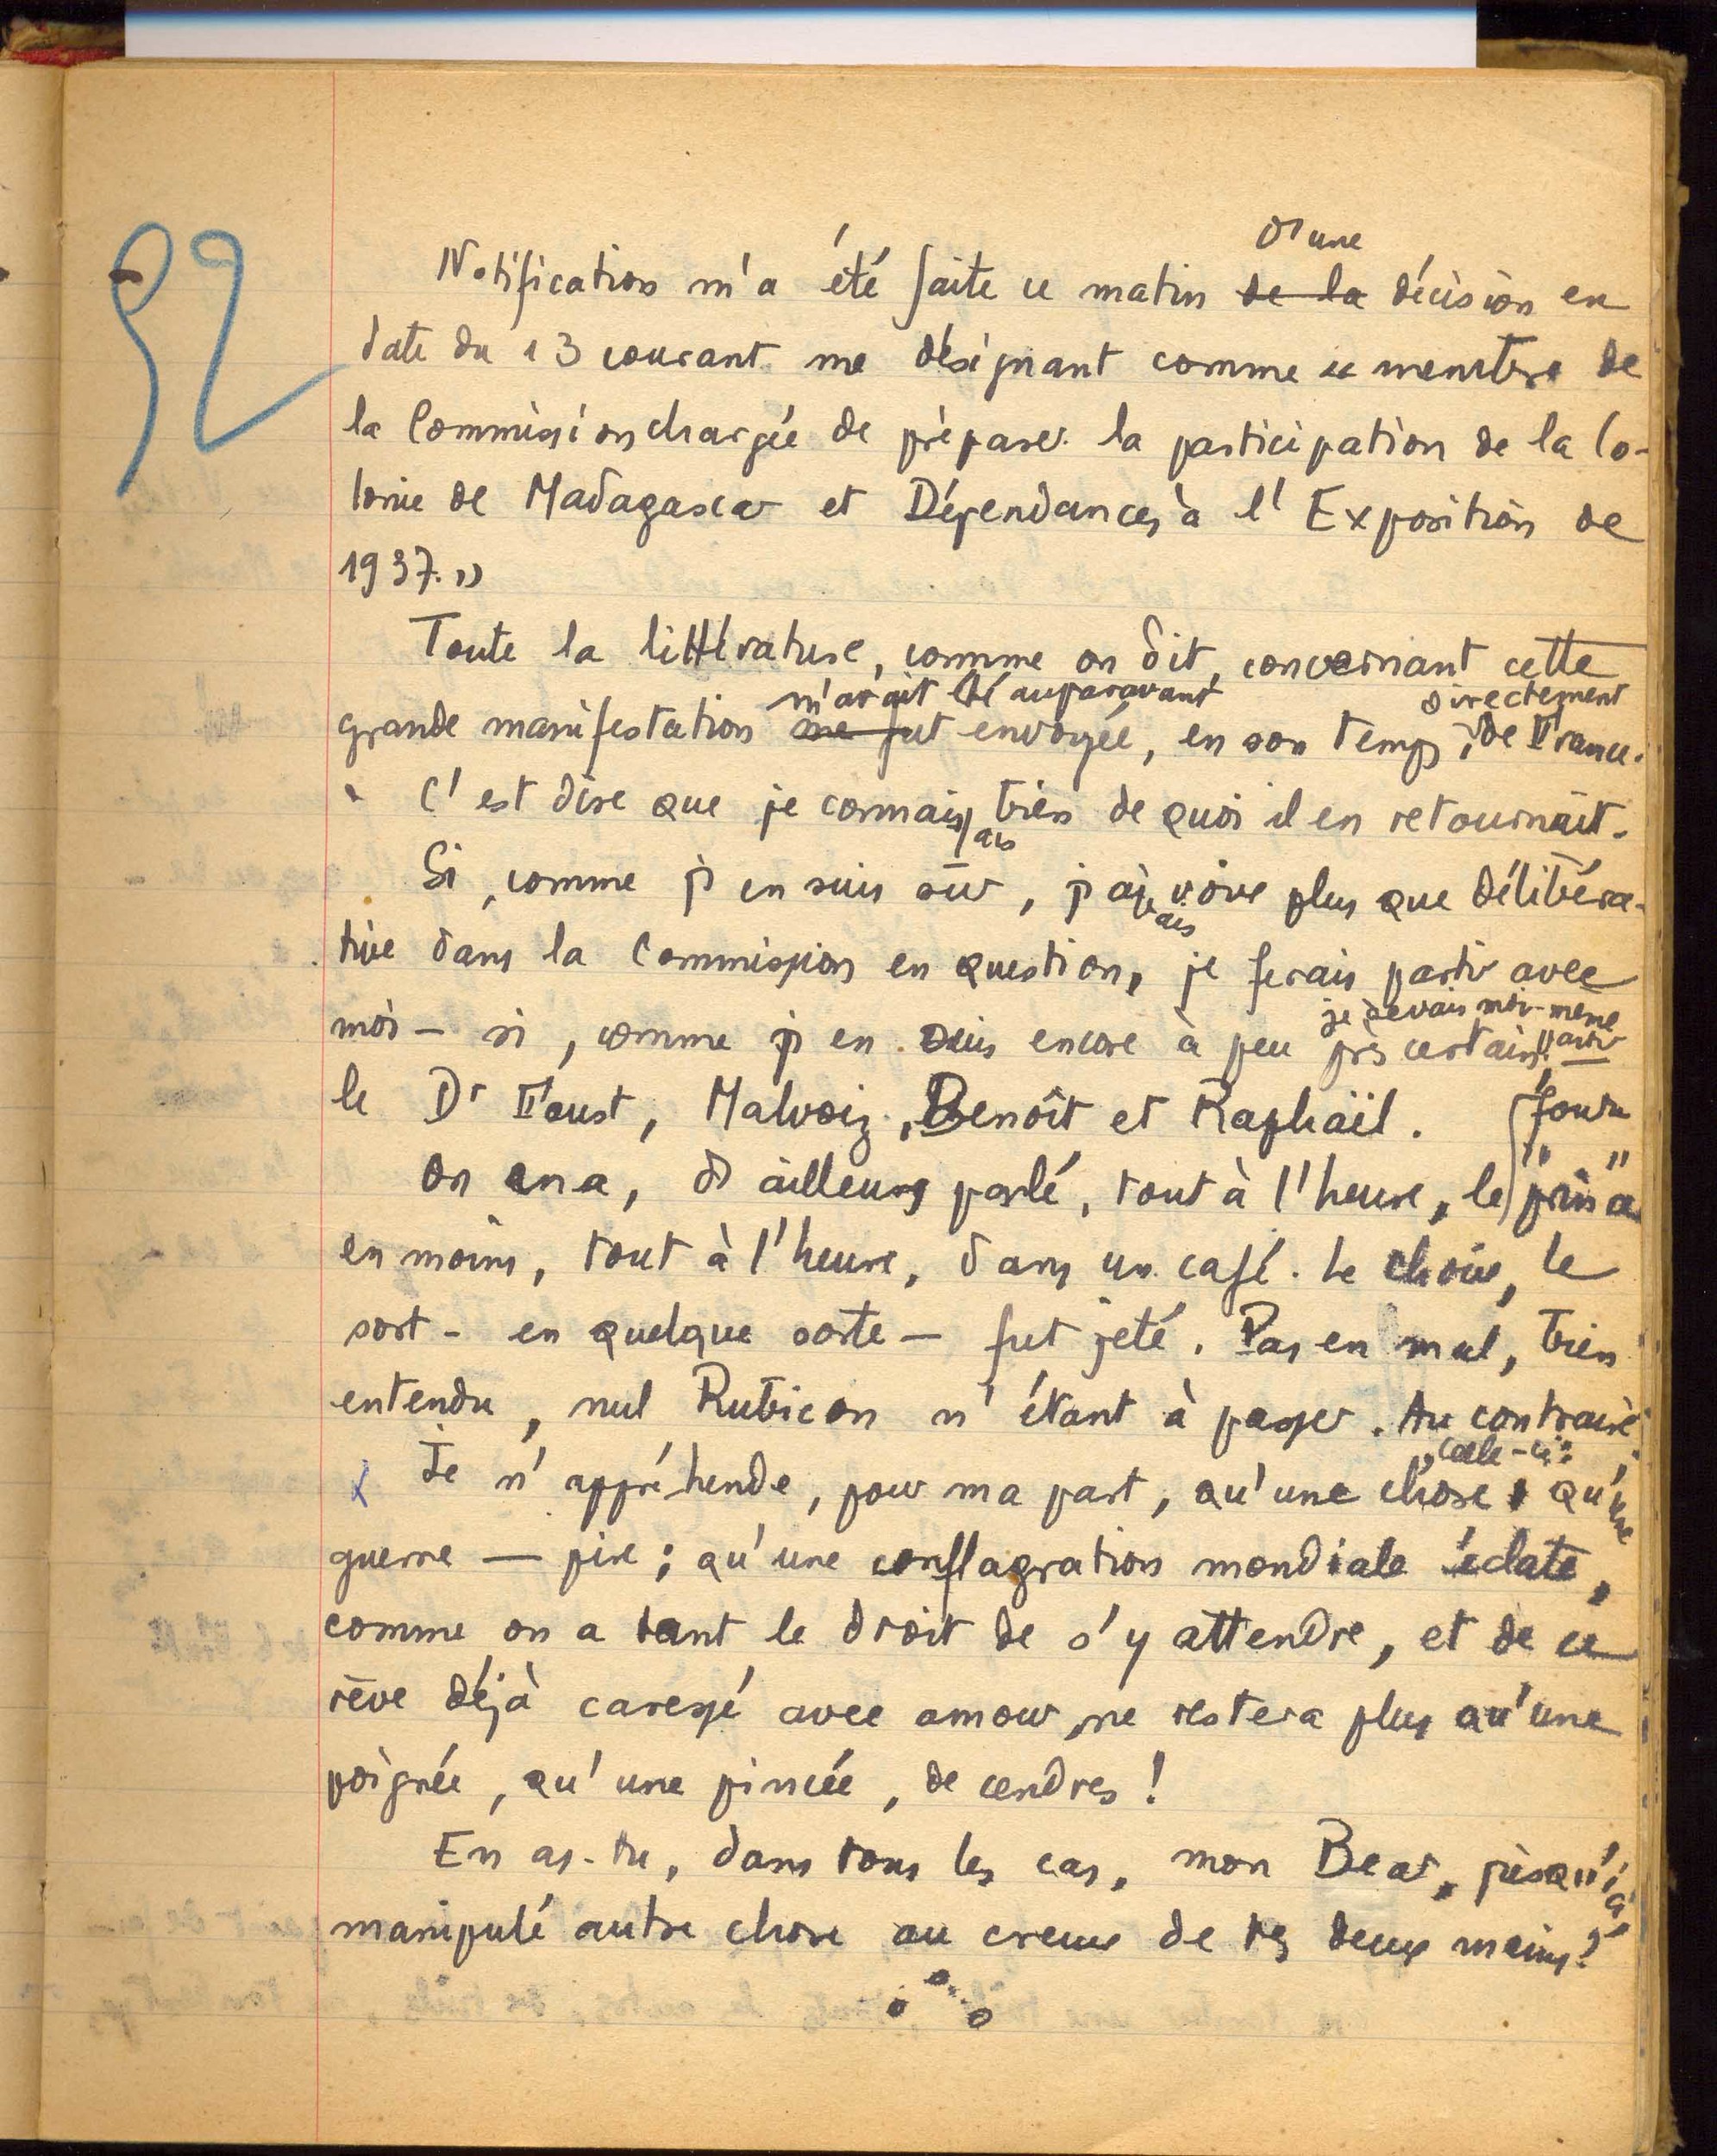 92
d'une
Notification m'a été faite ce matin de la décision en
date du 13 courant me désignant comme « membre de
la Commission chargée de préparer la participation de la Co-
lonie de Madagascar et Dépendances à l'Exposition de
1937. »
Toute la littérature, comme on dit, concernant cette
m'avait été auparavant directement
grande manifestation me fut envoyée, en son temps, de France.
C'est dire que je connais bien de quoi il en retournait.
ais
Si, comme j'en suis sûr, j'ai voix plus que délibéra-
ais
tive dans la Commission en question, je ferais partir avec
je devais moi-même
moi – si, comme j'en suis encore à peu près certain, partir –
le Dr Faust, Malvoiz, Benoît et Raphaël.
On en a, d'ailleurs parlé, tout à l'heure, le
en moins, tout à l'heure, dans un café. Le choix, le
sort – en quelque sorte – fut jeté. Pas en mal, bien
entendu, nul Rubicon n'étant à passer. Au contraire.
, celle-ci :
Je n'appréhende, pour ma part, qu'une chose qu'une
guerre — pire ; qu'une conflagration mondiale éclate,
comme on a tant le droit de s'y attendre, et de ce
rêve déjà caressé avec amour, ne restera plus qu'une
poignée, qu'une pincée, de cendres !
En as-tu, dans tous les cas, mon Bear, jusqu'ici,
manipulé autre chose au creux de tes deux mains ?